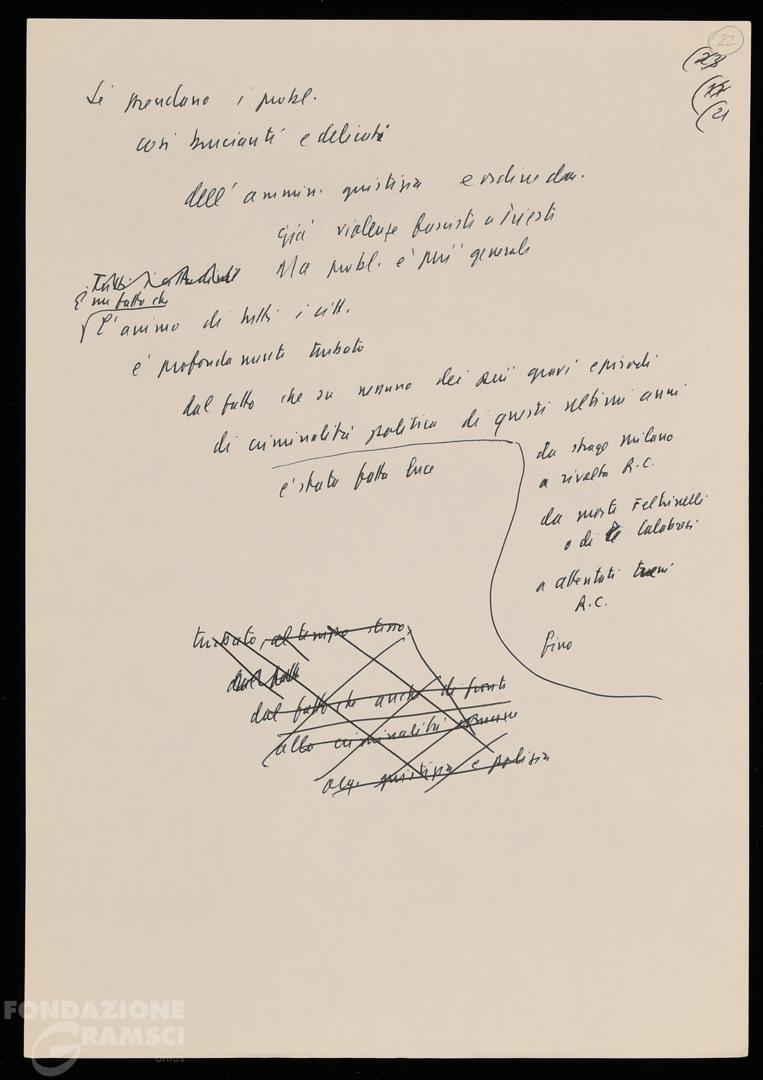 22
(23
(21
Si prendano i probl.
così brucianti e delicati
dell'ammin. giustizia e ordine dem.
già violenze fasciste a Trieste
Ma probl. è più generale
È un fatto che
l'animo di tutti i citt.
è profondamente turbato
dal fatto che su nessuno dei più gravi episodi
di criminalità politica di questi ultimi anni
è stata fatta luce
da strage Milano
a rivolta R.C.
da morte Feltrinelli
a di Calabresi
a attentati treni
R.C.
fino
turbato, al tempo stesso,
dal fatto
dal fatto che anche di fronte
alla criminalità comune
giustizia e polizia